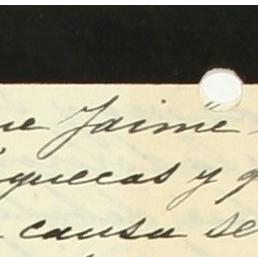 ue Jaime
iquecas y q
causa se